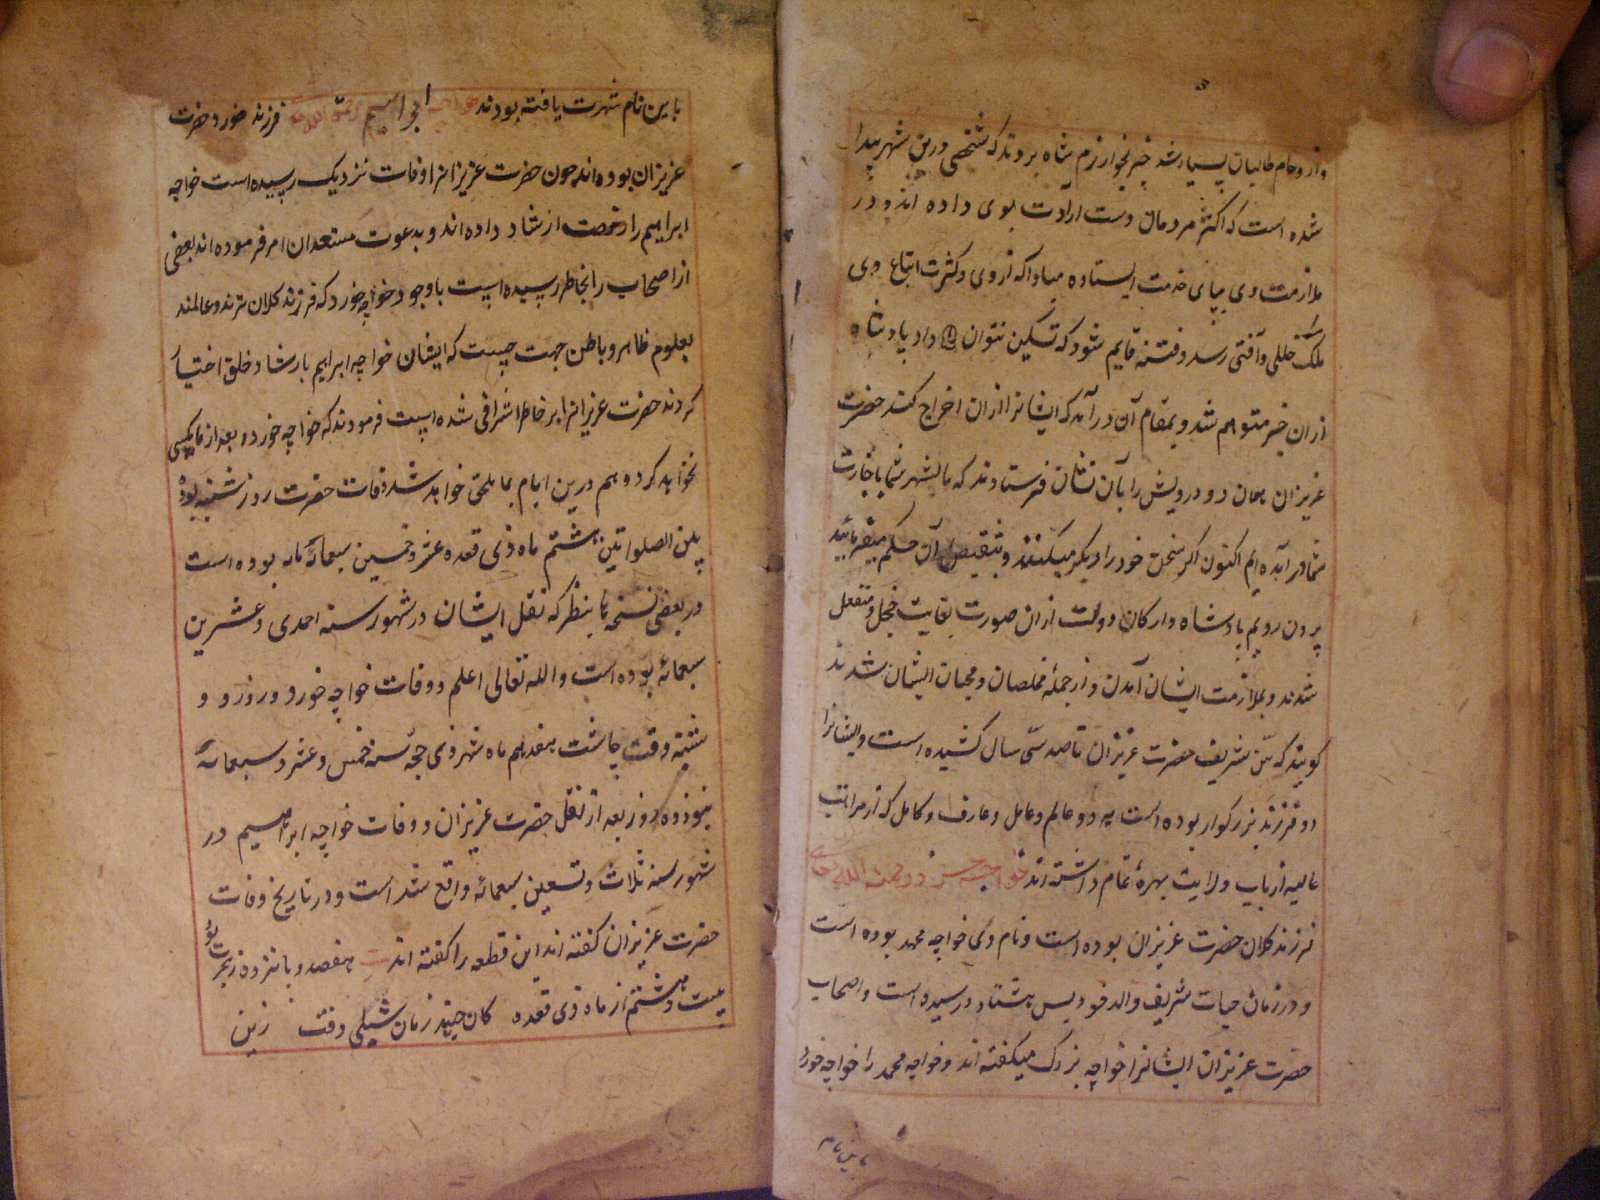 واز دحام طالبان بسیار شد خبر بخوارزم شاه بردند که شخصی درین شهر پیدا
شده است که اکثر مردمان دست ارادت بوی داده اند و در
ملازمت وی بپای خدمت ایستاده مبادا که از وی و کثرت اتباع وی
ملک خللی و آفتی رسد و فتنه قایم شود که تسکین نتوان داد پادشاه
ازان خبر متوهم شد و بمقام آن درآمد که ایشانرا ازان اخراج کند حضرت
عزیزان همان دو درویش را بآن نشان فرستادند که ما بشهر شما باجازت
شما درآمده ایم اکنون اگر سخن خود را دیگر میکنند و بنقیض آن حکم میفرمائید
برون رویم پادشاه و ارکان دولت ازان صورت بغایت خجل و منفعل
شدند و بملازمت ایشان آمدن و از جمله مخلصان و محبان ایشان شدند
کویند که سن شریف حضرت عزیزان تا صد سی سال کشیده است و ایشانرا
دو فرزند بزرکوار بوده است هر دو عالم و عامل و عارف و کامل که از مراتب
عالیه ارباب ولایت بهره تمام داشته اند خواجه خورد رحمة الله
فرزند کلان حضرت عزیزان بوده است و نام وی خواجه محمد بوده است
و در زمان حیات شریف والد خود بسن هشتاد رسیده است و اصحاب
حضرت عزیزان ایشانرا خواجه بزرک میکفته اند و خواجه محمد را خواجه خورد
باین نام
باین نام شهرت یافته بودند خواجه ابراهیم رحمة الله فرزند خورد حضرت
عزیزان بوده اند چون حضرت عزیزانرا وفات نزدیک رسیده است خواجه
ابراهیم را رخصت ارشاد داده اند و بدعوت مستعدان امر فرموده اند بعضی
از اصحاب را بخاطر رسیده است با وجود خواجه خورد که فرزند کلان ترند و عالمند
بعلوم ظاهر و باطن جهت چیست که ایشان خواجه ابراهیم بارشاد خلق اختیار
کردند حضرت عزیزانرا بر خاطر اشرافی شده است فرمودند که خواجه خورد بعد از ما بسی
نخواهد کرد و هم درین ایام بما ملحق خواهد شد وفات حضرت روز شنبه بوده
بین الصلواتین هشتم ماه ذی قعده عشر و خمسین سبعمائه بوده است
در بعضی نسخها بنظر که نقل ایشان در شهور سنه احدی و عشرین
سبعمائه بوده است و الله تعالی اعلم و وفات خواجه خورد در روز و
شنبه وقت چاشت هفدهم ماه شهر ذی حجه سنه خمس و عشر و سبعمائه
بنوزده روز بعد از نقل حضرت عزیزان و وفات خواجه ابراهیم در
شهور سنه ثلاث و تسعین سبعمائه واقع شد است و در تاریخ وفات
حضرت عزیزان کفته اند این قطعه را کفته اند هفصد و پانزده ز هجرت بود
بیست و هشتم از ماه ذی قعده کان جنید زمان شبلی وقت زین